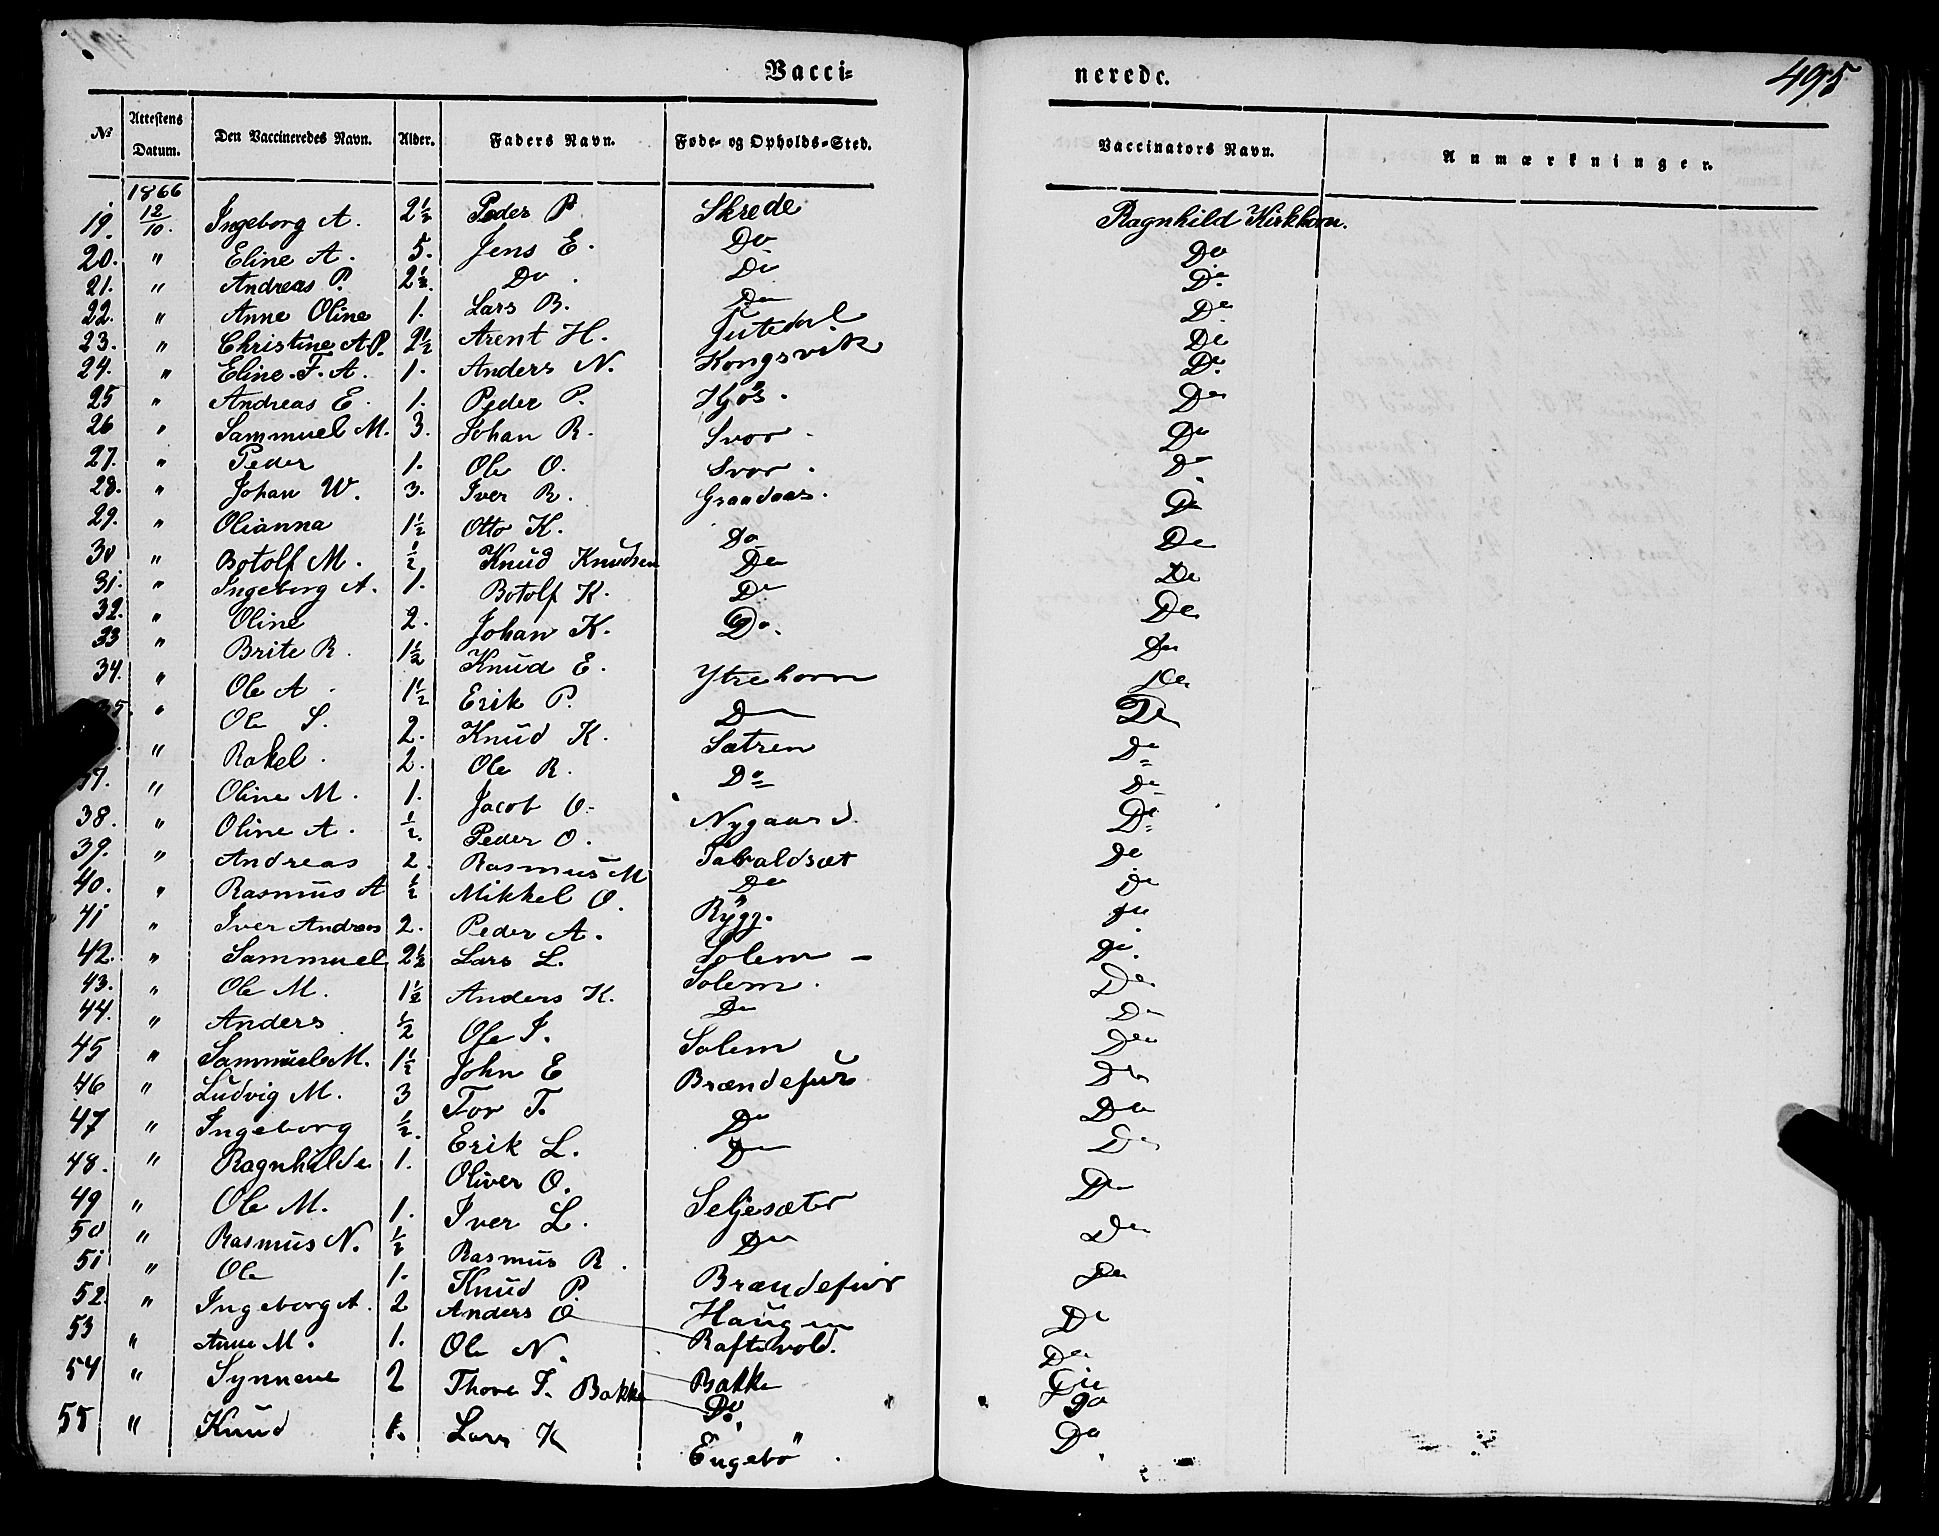 Vacci- nerede. 495
No Attestens Datum. Den Vaccineredes Navn. Alder. Faders Navn. Føde- og Opholds-Sted. Vaccinators Navn. Anmærkninger.
1866
19. 12/10. Ingeborg A. 2½ Peder P. Skrede Ragnhild Kirkhorn.
20. " Eline A. 5. Jens E. Do Do
21. " Andreas P. 2½. Do. Do Do
22. " Anne Oline 1. Lars B. Do Do
23. " Christine A.P. 2½ Arent H. Jutedal Do
24. " Eline. F. A. 1. Anders N. Kongsvik Do
25 " Andreas E. 1. Peder P. Hjøs. Do
26 " Sammuel M. 3. Johan R. Svor. Do
27. " Peder 1. Ole O. Svor. Do
28. " Johan W. 3. Iver R. Grandaas. Do
29. " Olianna 1½ Otto K. Do Do
30 " Botolf M. ½ Knud Knudsen Do Do
31. " Ingeborg A. 1. Botolf K. Do Do
32. " Oline 2. Johan K. Do. Do
33 " Brite R. 1½ Knud E. Ytrehorn Do
34. " Ole A. 1½ Erik P. Do Do
35. " Ole S. 2. Knud K. Sætren Do
" Rakel. 2. Ole R. Do Do
37. " Oline M. 1. Jacob O. Nygaard. Do
38. " Oline A. ½. Peder O. Tavaldsæt Do
39. " Andreas 2. Rasmus M Do Do
40. " Rasmus A ½ Mikkel O. Rygg. Do
41 " Iver Andreas 2. Peder A. Solem Do.
42. " Sammuel 2½ Lars L. Solem. Do
43. " Ole M. 1½ Anders K. Do Do
44. " Anders ½ Ole I. Solem Do
45 " Sammuel M. 1½ John E Brændefur Do
46 " Ludvig M. 3 Tor T. Do Do
47 " Ingeborg ½. Erik L. Do Do
48. " Ragnhilde 1. Oliver O. Seljesæter Do
49 " Ole M. 1. Iver L. Do Do
50 " Rasmus N. ½ Rasmus R. Brændefur Do
51 " Ole 1. Knud P. Haugen Do
52. " Ingeborg A. 2 Anders O Raftevold. Do
53 " Anne M. 1. Ole N. Bakke Do
54 " Synneve 2 Thore I. Bakke Do. Do
55 " Knud 1. Lars K Engebö. Do